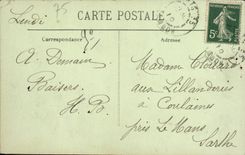 Lundi
75
CARTE POSTALE
Correspondance
Adresse
A Demain
Baisers
H B
Madame
aux Lillanderies
à Coulaines
près Le Mans
Sarthe
5c